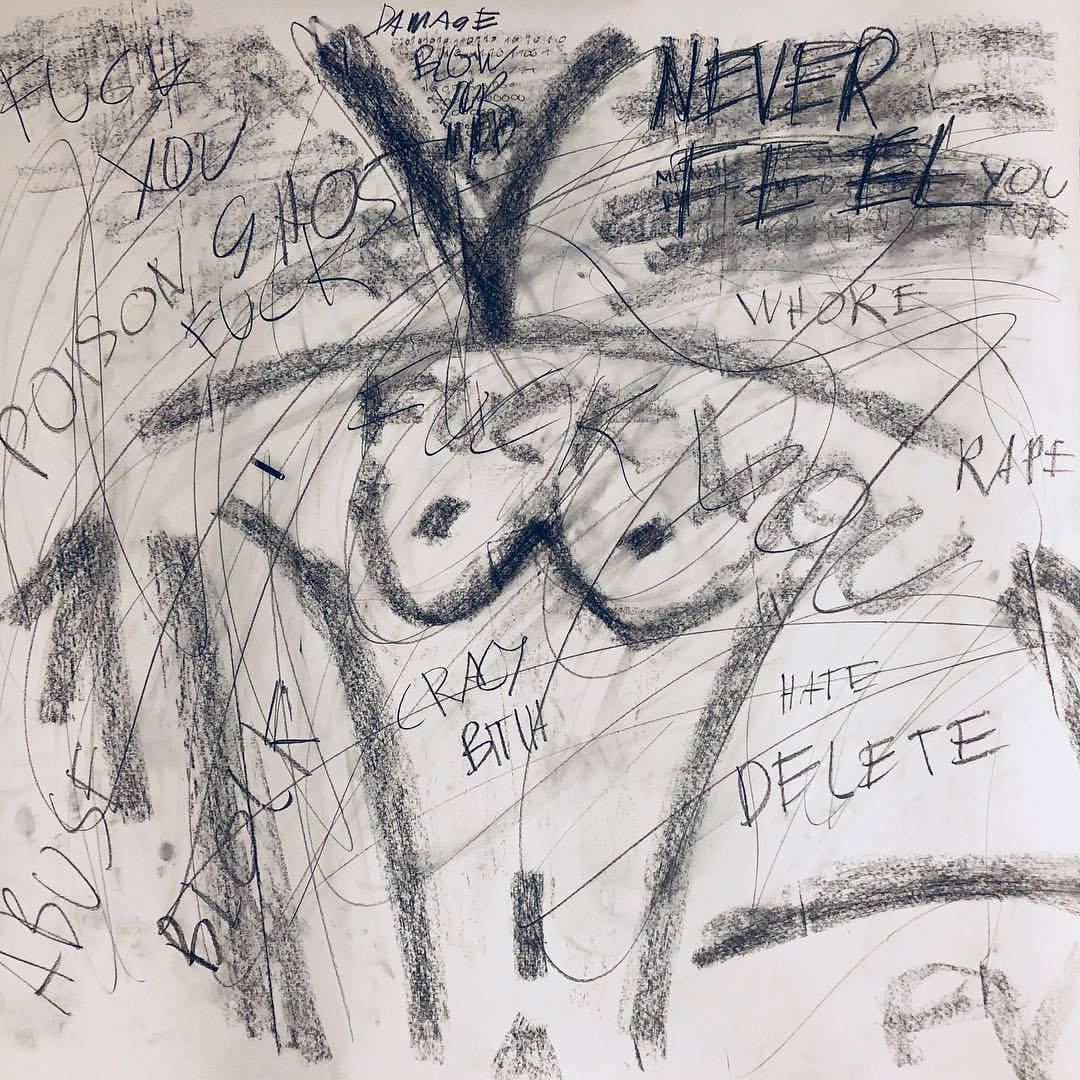 DAMAGE
BLOW
YOUR
MIND
NEVER
FEEL YOU
FUCK
YOU
POISON GHOST
FUCK
WHORE
FUCK YOU
RAPE
CRACY
BITCH
HATE
DELETE
ABUSE
BLOCK